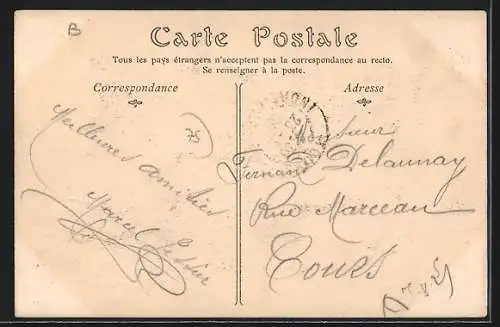 B
Carte Postale
Tous les pays étrangers n'acceptent pas la correspondance au recto.
Se renseigner à la poste.
Correspondance
Adresse
75
Meilleures amitiés
Marcel
Monsieur
Fernand Delaunay
Rue Marceau
Tours